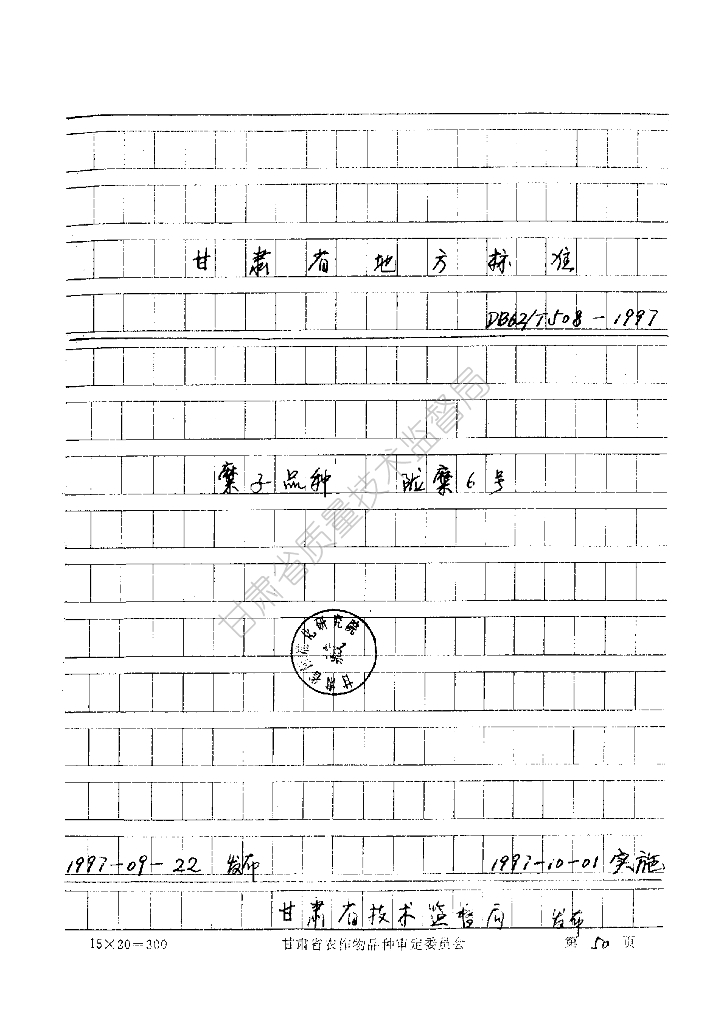 甘肃省地方标准
DB62/T508-1997
糜子品种 陇糜6号
甘肃省质量技术监督局
甘肃省标准化研究院
1997-09-22 发布 1997-10-01 实施
甘肃省技术监督局 发布
15×20=300 甘肃省农作物品种审定委员会 第 50 页